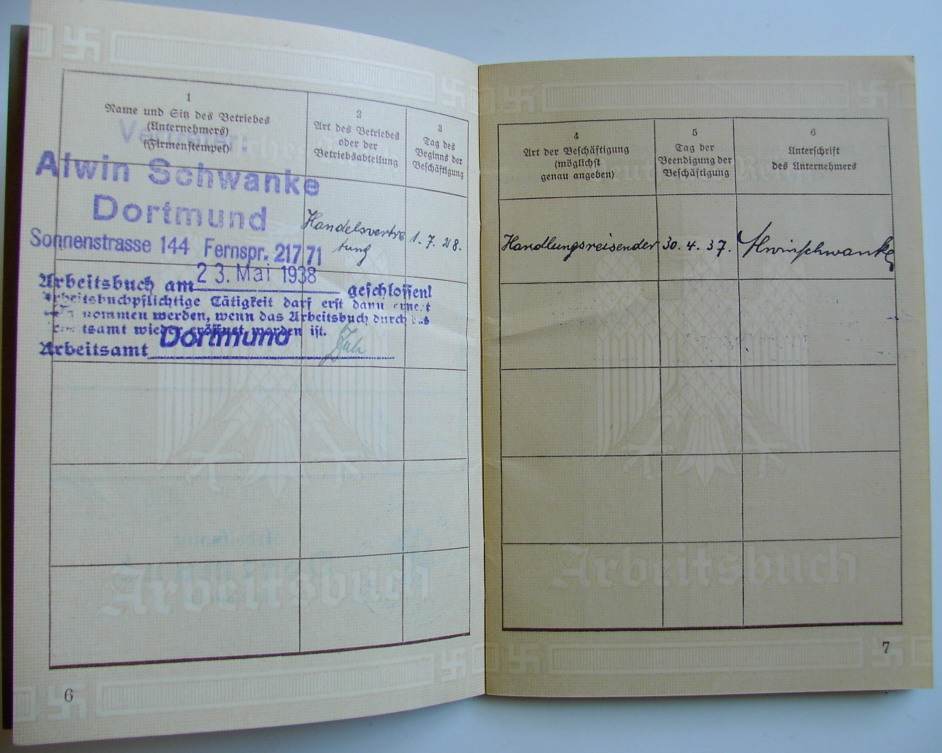 1
Name und Sitz des Betriebes
(Unternehmers)
(Firmenstempel)
2
Art des Betriebes
oder der
Betriebsabteilung
3
Tag des
Beginns der
Beschäftigung
Alwin Schwanke
Dortmund
Sonnenstrasse 144 Fernspr. 217 71
Handelsvertre
tung
1. 7. 28.
23. Mai 1938
Arbeitsbuch am geschlossen!
Arbeitsbuchpflichtige Tätigkeit darf erst dann erneut
nommen werden, wenn das Arbeitsbuch durch das
tsamt wieder eröffnet worden ist.
Arbeitsamt Dortmund
Arbeitsbuch
6
4
Art der Beschäftigung
(möglichst
genau angeben)
5
Tag der
Beendigung der
Beschäftigung
6
Unterschrift
des Unternehmers
Handlungsreisender 30. 4. 37. Alwin Schwanke
Arbeitsbuch
7